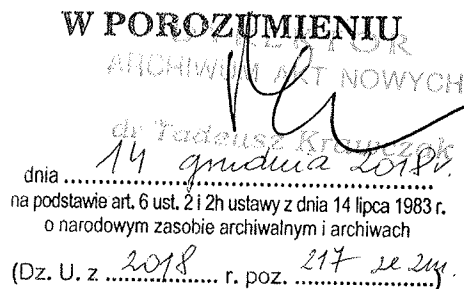 W POROZUMIENIU
DYREKTOR
ARCHIWUM AKT NOWYCH
dr Tadeusz Krawczak
dnia 14 grudnia 2018r.
na podstawie art. 6 ust. 2 i 2h ustawy z dnia 14 lipca 1983 r.
o narodowym zasobie archiwalnym i archiwach
(Dz. U. z 2018 r. poz. 217 ze zm.)